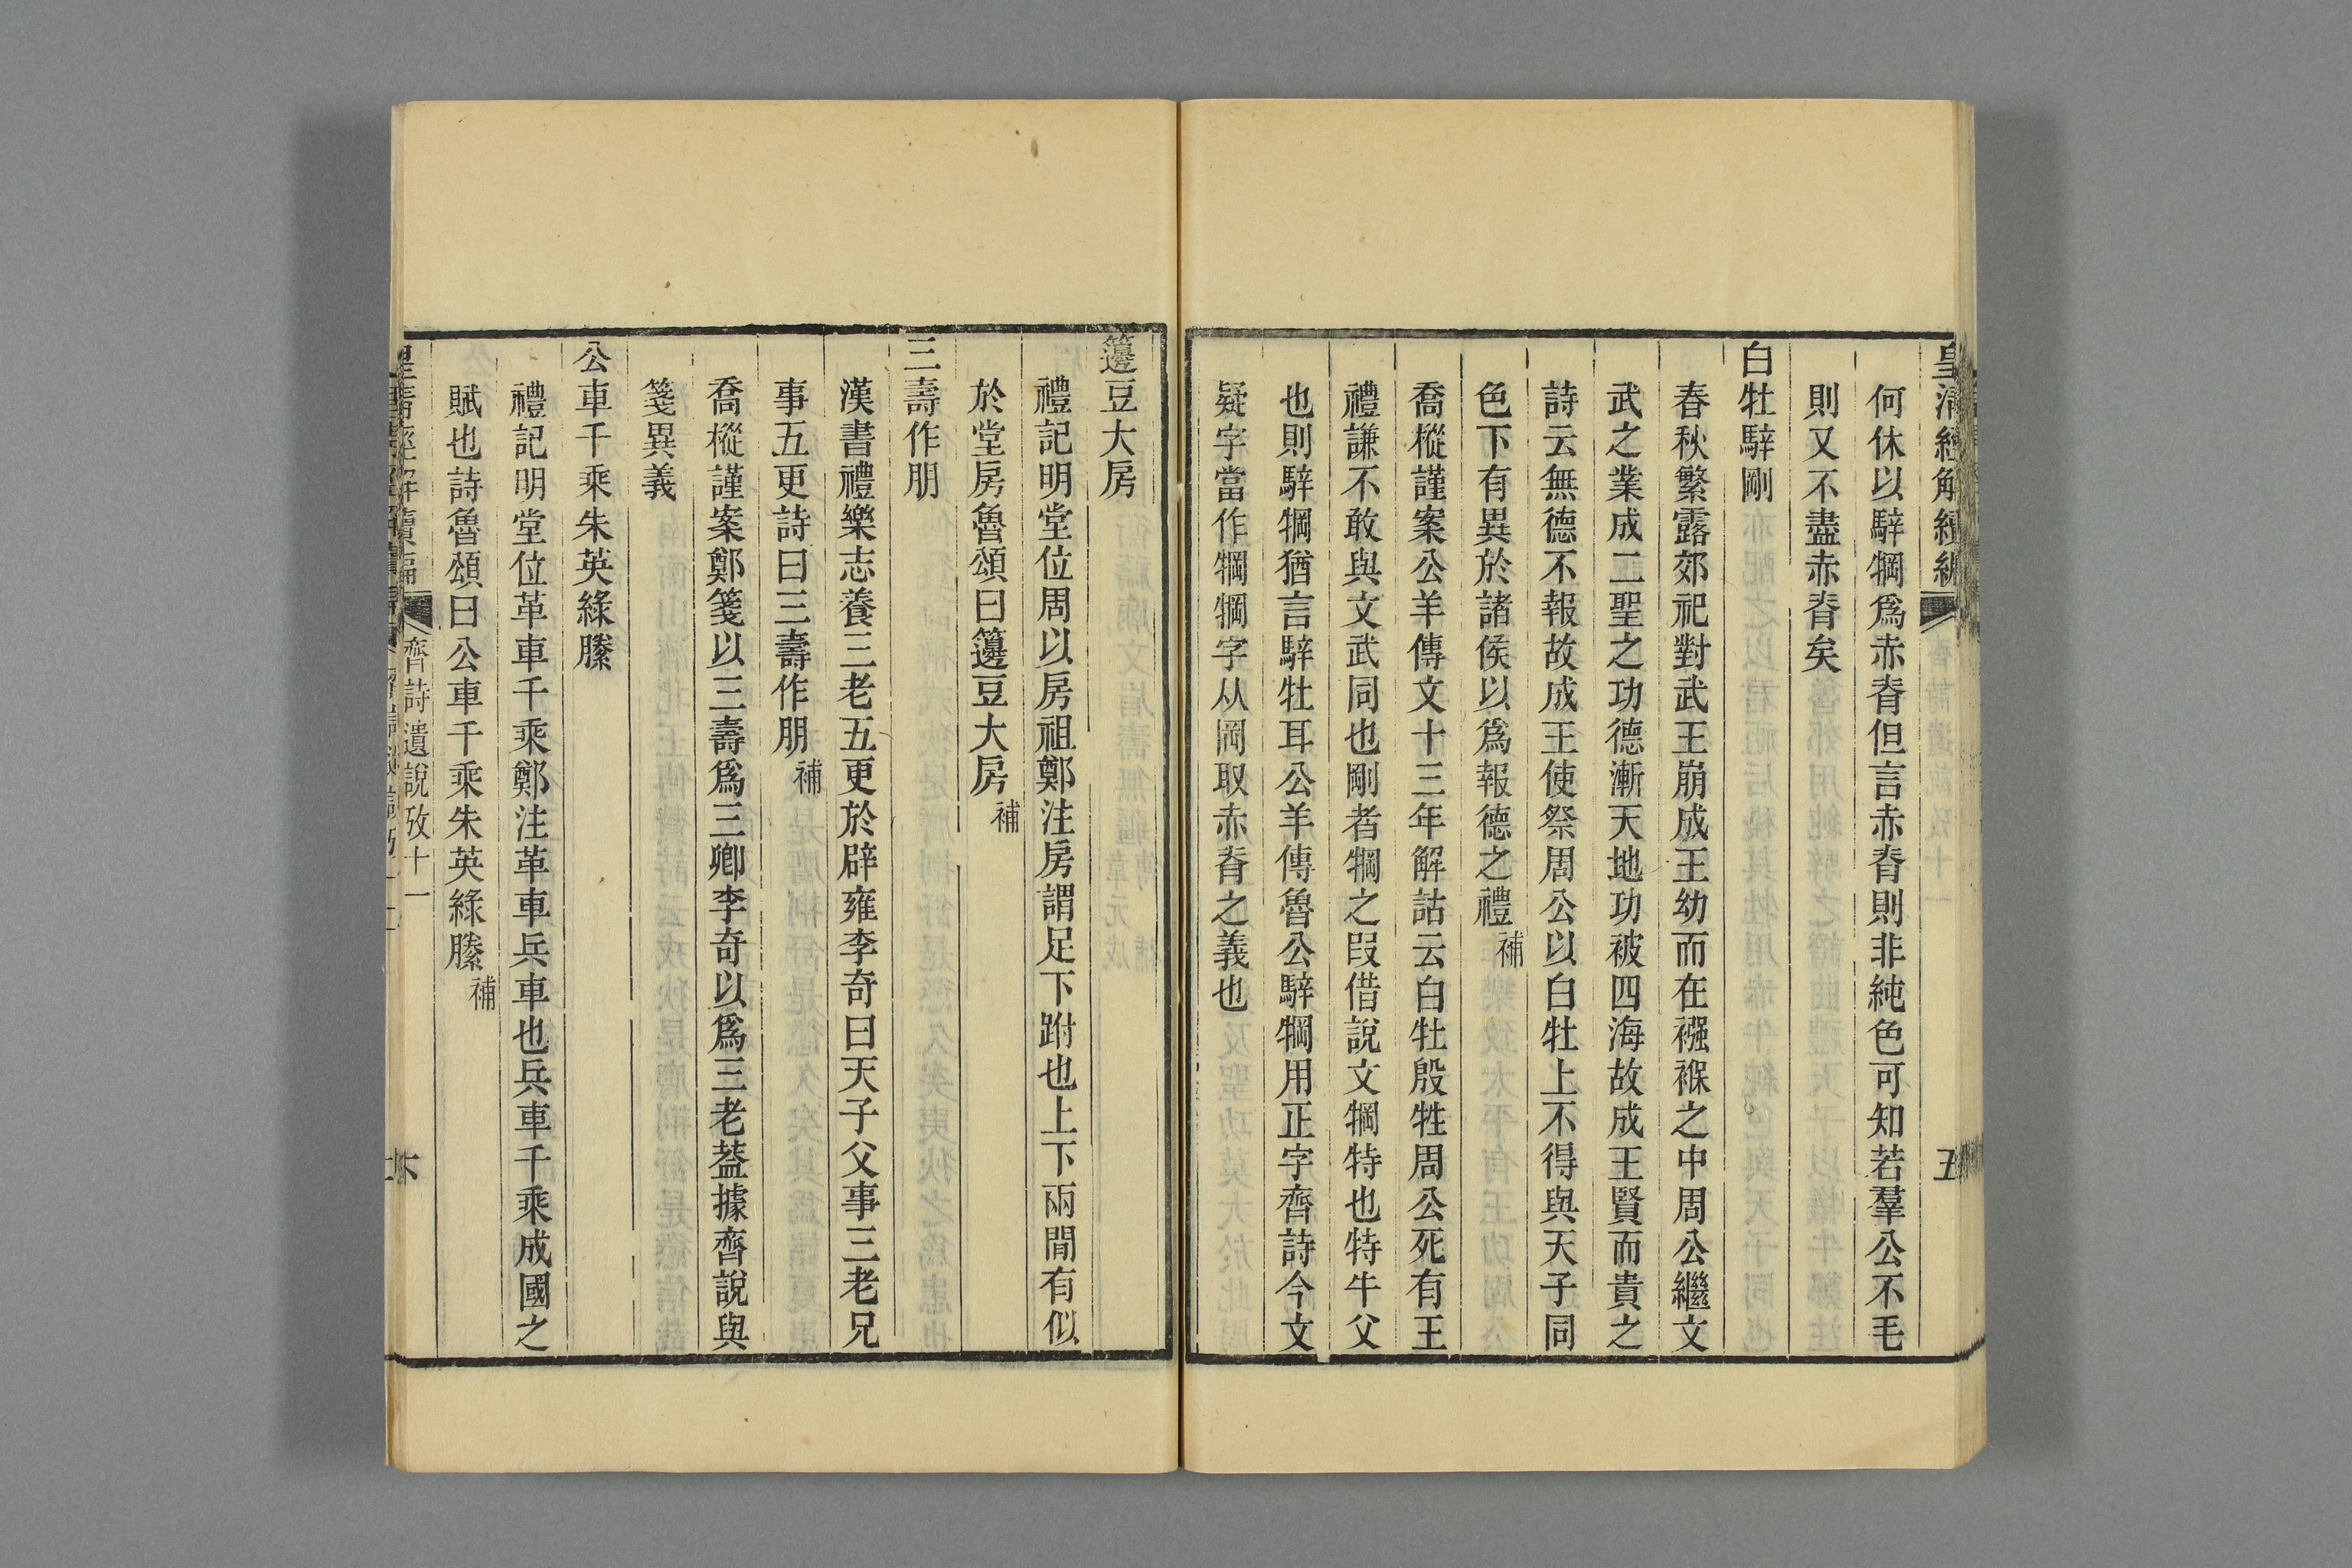 皇清經解續編
五
何休以騂犅爲赤脊但言赤脊則非純色可知若羣公不毛
則又不盡赤脊矣
白牡騂剛
春秋繁露郊祀對武王崩成王幼而在襁褓之中周公繼文
武之業成二聖之功德漸天地功被四海故成王賢而貴之
詩云無德不報故成王使祭周公以白牡上不得與天子同
色下有異於諸侯以爲報德之禮補
喬樅謹案公羊傳文十三年解詁云白牡殷牲周公死有王
禮謙不敢與文武同也剛者犅之叚借說文犅特也特牛父
也則騂犅猶言騂牡耳公羊傳魯公騂犅用正字齊詩今文
疑字當作犅犅字从岡取赤脊之義也
籩豆大房
禮記明堂位周以房祖鄭注房謂足下跗也上下兩閒有似
於堂房魯頌曰籩豆大房補
三壽作朋
漢書禮樂志養三老五更於辟雍李奇曰天子父事三老兄
事五更詩曰三壽作朋補
喬樅謹案鄭箋以三壽爲三卿李奇以爲三老蓋據齊說與
箋異義
公車千乘朱英綠縢
禮記明堂位革車千乘鄭注革車兵車也兵車千乘成國之
賦也詩魯頌曰公車千乘朱英綠縢補
皇清經解續編
齊詩遺說攷十一
六